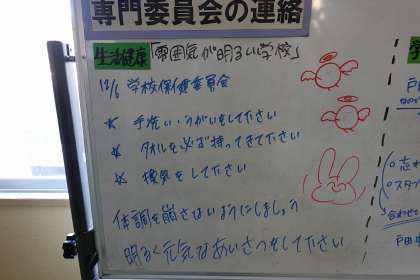 専門委員会の連絡
生活健康「雰囲気が明るい学校」
12/6 学校保健委員会
☆ 手洗い、うがいをしてださい
☆ タオルを必ず持ってきてださい
☆ 換気をしてださい
体調を崩さないようにしましょう
明るく元気なあいさつをしてださい
戸田